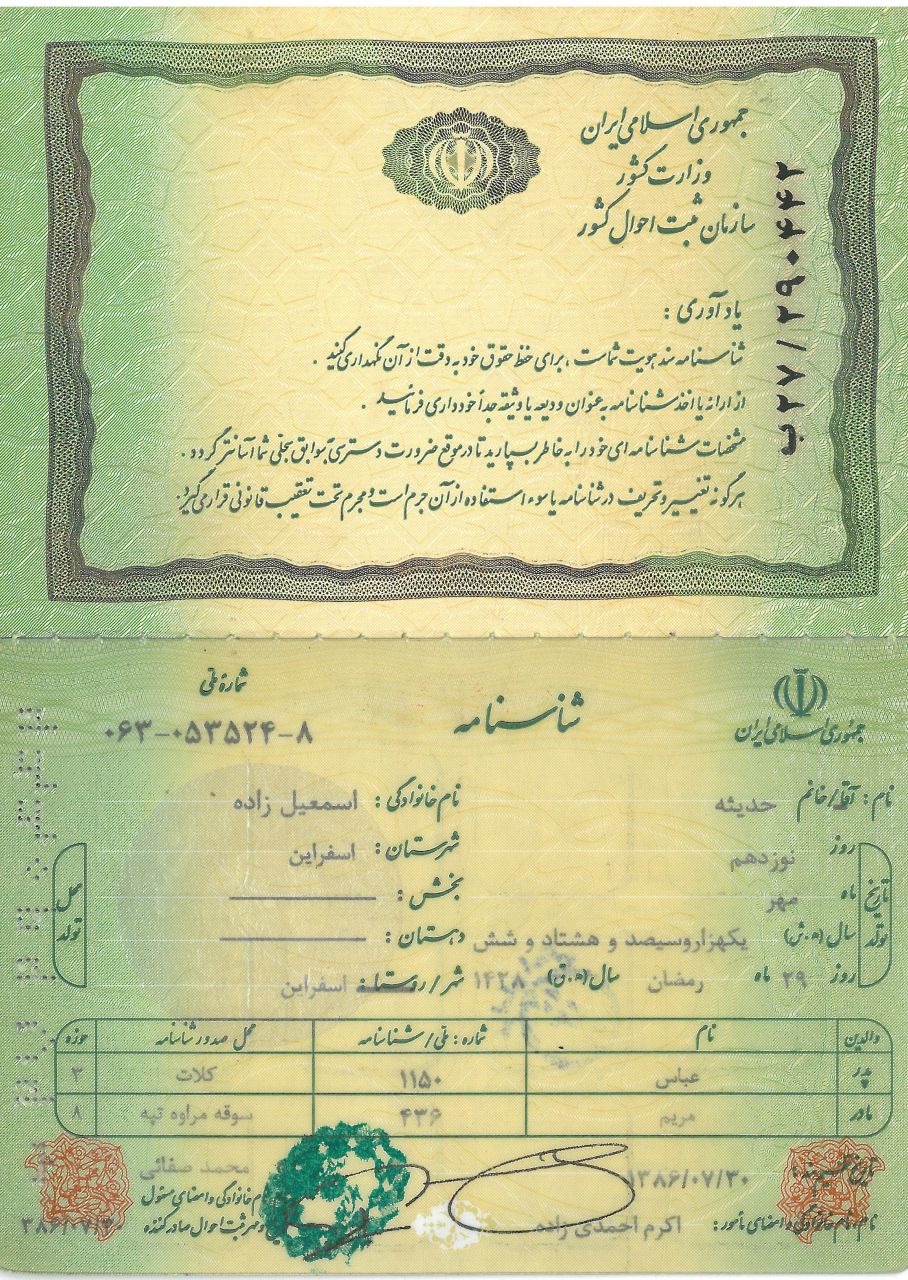 جمهوری اسلامی ایران
وزارت کشور
سازمان ثبت احوال کشور
ب۲۷/۲۹۰۴۴۲
یادآوری :
شناسنامه سند هویت شماست ، برای حفظ حقوق خود به دقت از آن نگهداری کنید .
از ارائه یا اخذ شناسنامه به عنوان ودیعه یا وثیقه جداً خودداری فرمائید .
مشخصات شناسنامه ای خود را به خاطر بسپارید تا در موقع ضرورت دسترسی بسوابق سجلی شما آسانتر گردد .
هرگونه تغییر و تحریف در شناسنامه یا سوء استفاده از آن جرم است و مجرم تحت تعقیب قانونی قرار می گیرد.
جمهوری اسلامی ایران
شناسنامه
شمارهٔ ملی
۰۶۳-۰۵۳۵۲۴-۸
نام : آقا/خانم حدیثه نام خانوادگی : اسمعیل زاده
تاریخ تولد
روز نوزدهم
ماه مهر
سال (ه.ش) یکهزاروسیصد و هشتاد و شش
روز ۲۹ ماه رمضان سال (ه.ق) ۱۴۲۸
محل تولد
شهرستان : اسفراین
بخش :
دهستان :
شهر/روستا : اسفراین
والدین نام شماره : ملی/شناسنامه محل صدور شناسنامه حوزه
پدر عباس ۱۱۵۰ کلات ۳
مادر مریم ۴۳۶ سوقه مراوه تپه ۸
تاریخ تنظیم سند : ۱۳۸۶/۰۷/۳۰
نام ، نام خانوادگی و امضای مأمور : اکرم احمدی زاده
محمد صفائی
نام خانوادگی و امضای مسئول
و مهر ثبت احوال صادر کننده
۱۳۸۶/۰۷/۳۰